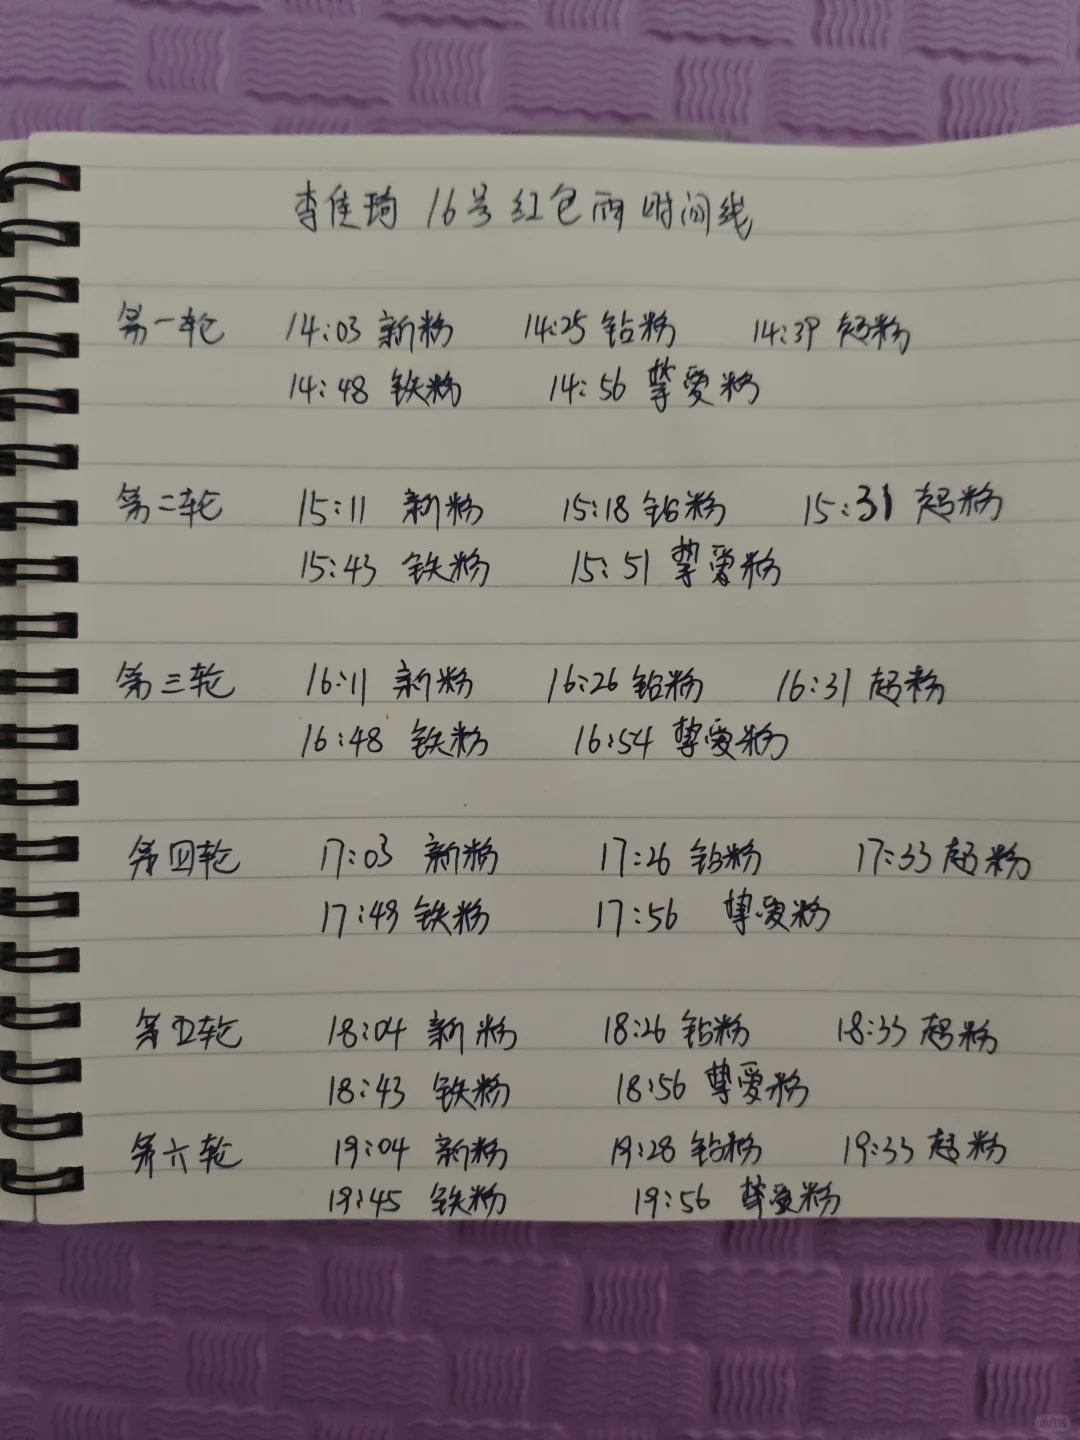 李佳琦 16号红包雨时间线
第一轮 14:03 新粉 14:25 钻粉 14:39 超粉
14:48 铁粉 14:56 挚爱粉
第二轮 15:11 新粉 15:18 钻粉 15:31 超粉
15:43 铁粉 15:51 挚爱粉
第三轮 16:11 新粉 16:26 钻粉 16:31 超粉
16:48 铁粉 16:54 挚爱粉
第四轮 17:03 新粉 17:26 钻粉 17:33 超粉
17:49 铁粉 17:56 挚爱粉
第五轮 18:04 新粉 18:26 钻粉 18:33 超粉
18:43 铁粉 18:56 挚爱粉
第六轮 19:04 新粉 19:28 钻粉 19:33 超粉
19:45 铁粉 19:56 挚爱粉
小红书